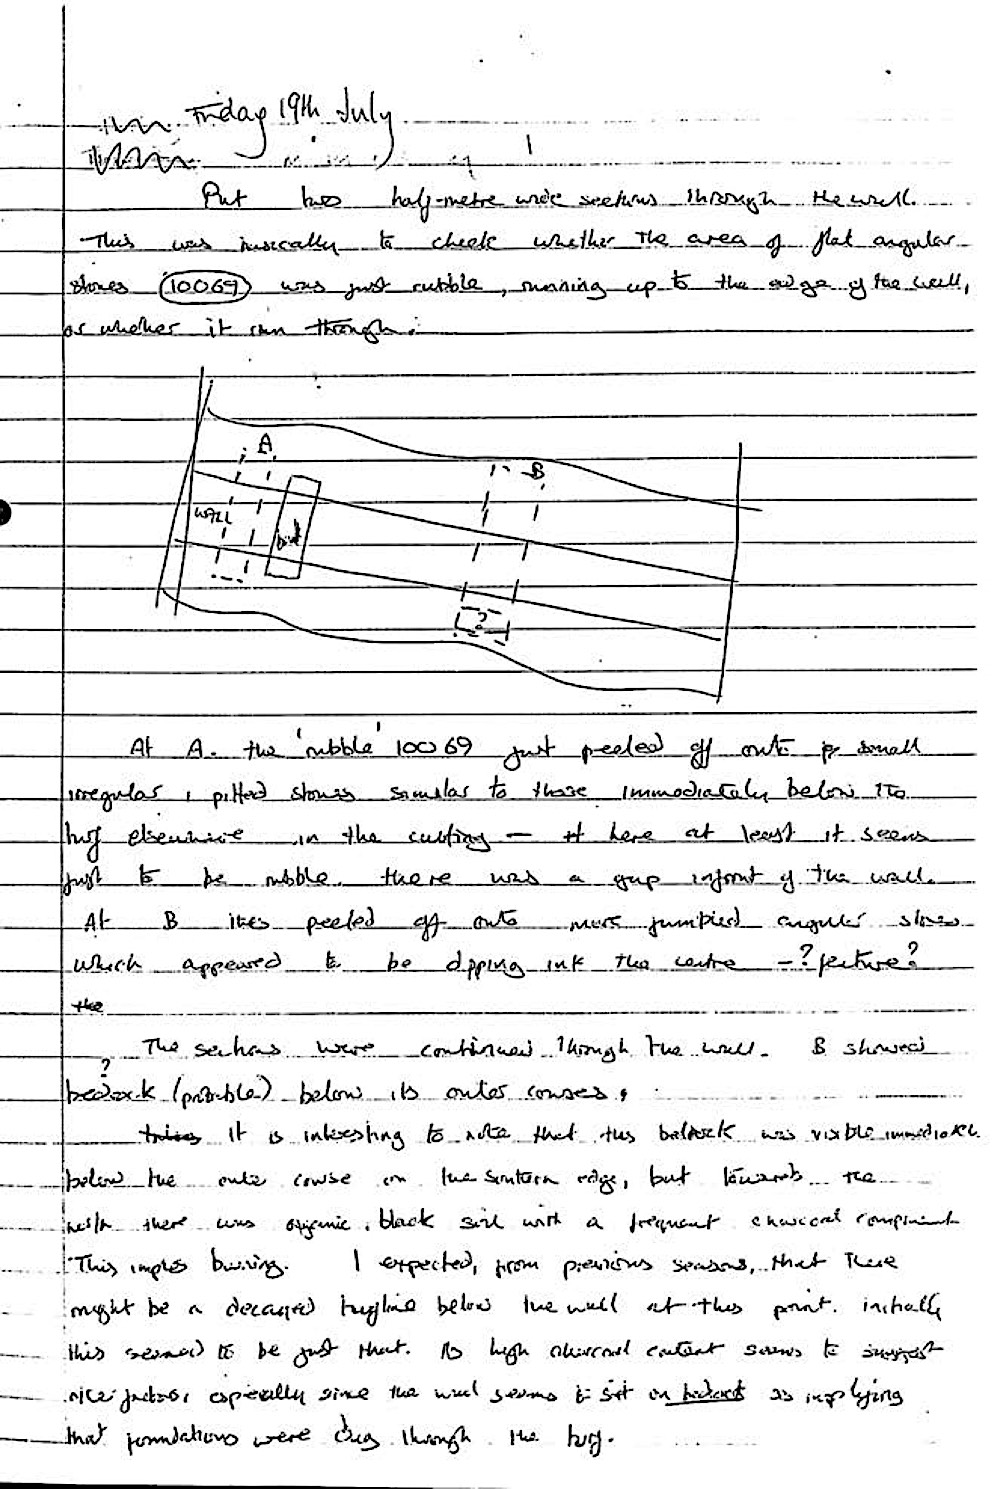 Friday 19th July
1
Put two half-metre wide sections through the wall.
This was basically to check whether the area of flat angular
stones 10069 was just rubble, running up to the edge of the wall,
or whether it ran through.
A
B
WALL
?
At A. the 'rubble' 10069 just peeled off onto small
irregular, pitted stones similar to those immediately below the
turf elsewhere in the cutting — here at least it seems
just to be rubble. there was a gap infront of the wall.
At B this peeled off onto more jumbled angular stones
which appeared to be dipping into the centre - ? feature?
the
The sections were continued through the wall. B showed
?
bedrock (probable) below its outer courses.
It is interesting to note that this bedrock was visible immediately
below the outer course on the southern edge, but towards the
north there was organic, black soil with a frequent charcoal component
This implies burning. I expected, from previous seasons, that there
might be a decayed turfline below the wall at this point. initially
this seemed to be just that. Its high charcoal content seems to suggest
especially since the wall seems to sit on bedrock so implying
that foundations were dug through the turf.